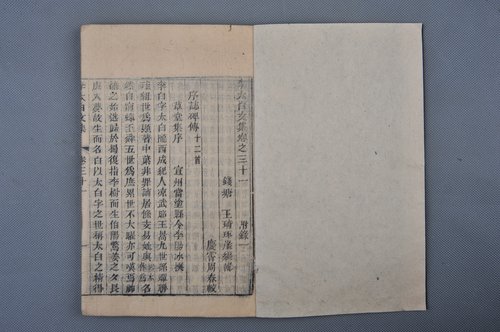 李太白文集卷之三十一 附錄一
錢塘 王琦琢崖編輯
序誌碑傳十二首
草堂集序 宣州當塗縣令李陽冰撰
李白字太白隴西成紀人涼武昭王暠九世孫蟬聯
珪組世為顯著中葉非罪謫居條支易姓與名
然自窮蟬至舜五世為庶累世不大曜亦可嘆焉神
龍之始逃歸於蜀復指李樹而生伯陽驚姜之夕長
庚入夢故生而名白以太白字之世稱太白之精得
李太白文集 卷三十一